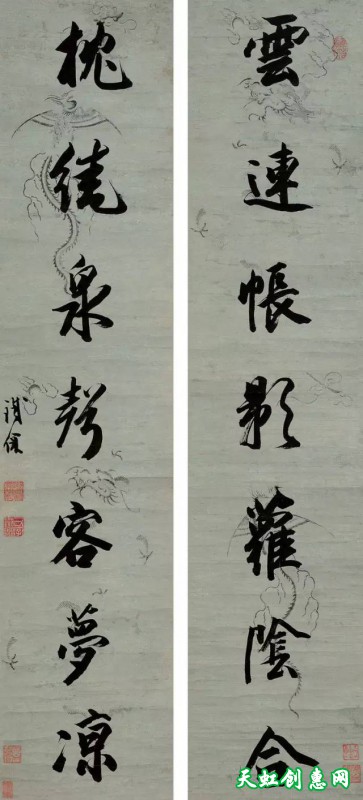 雲連帳影蘿陰合
枕繞泉聲客夢涼
天虹创惠网